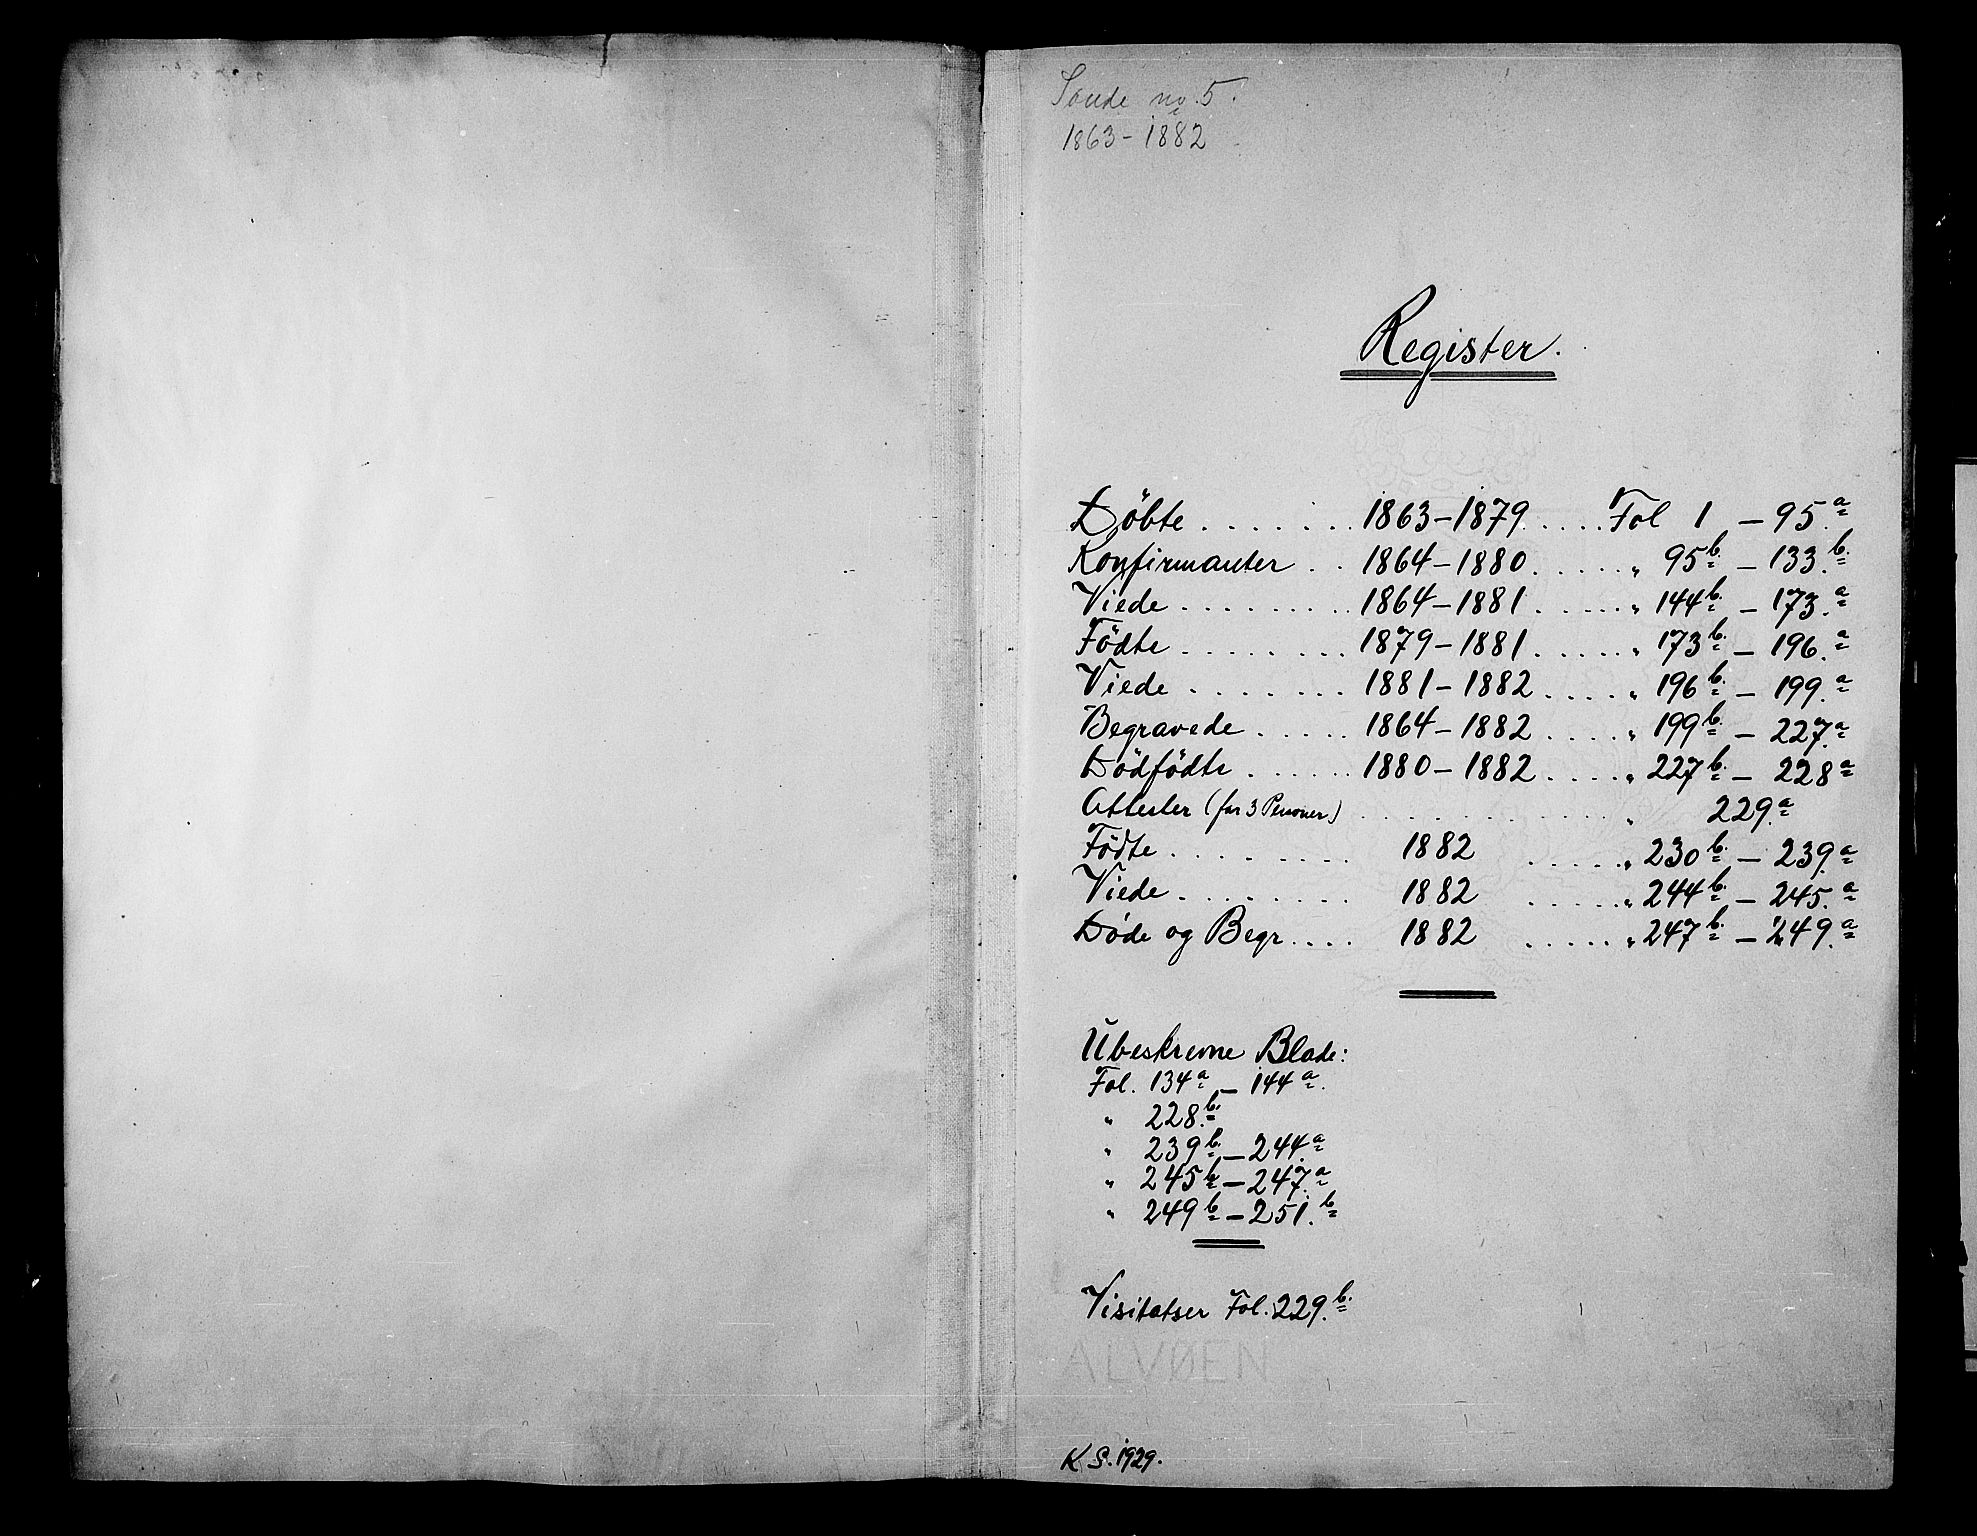 Sande no. 5.
1863-1882
Register.
Döbte . . . . . . . 1863-1879 . . . . Fol 1 - 95.a
Konfirmanter . . 1864-1880 . . . . . " 95b. - 133.b.
Viede . . . . . . . . . 1864-1881 . . . . . " 144b. - 173.a
Födte . . . . . . . . . 1879-1881 . . . . . " 173b. - 196.a
Viede . . . . . . . . 1881-1882 . . . . " 196b. - 199.a
Begravede . . . . . 1864-1882 . . . . " 199b. - 227.a
Dödfödte . . . . . . 1880-1882 . . . . " 227b. - 228a
Attester (for 3 Personer) . . . . . . . . . . . . . " 229.a
Födte . . . . . . . . 1882 . . . . . " 230b. - 239.a
Viede . . . . . . . . 1882 . . . . . " 244b. - 245.a
Døde og Begr. . . . 1882 . . . . . " 247b. - 249.a
Ubeskrevne Blade:
Fol. 134a - 144a.
" 228.b.
" 239b. - 244.a
" 245b - 247.a
" 249b. - 251.b
Visitatser Fol. 229.b.
ALVØEN
K S. 1929.